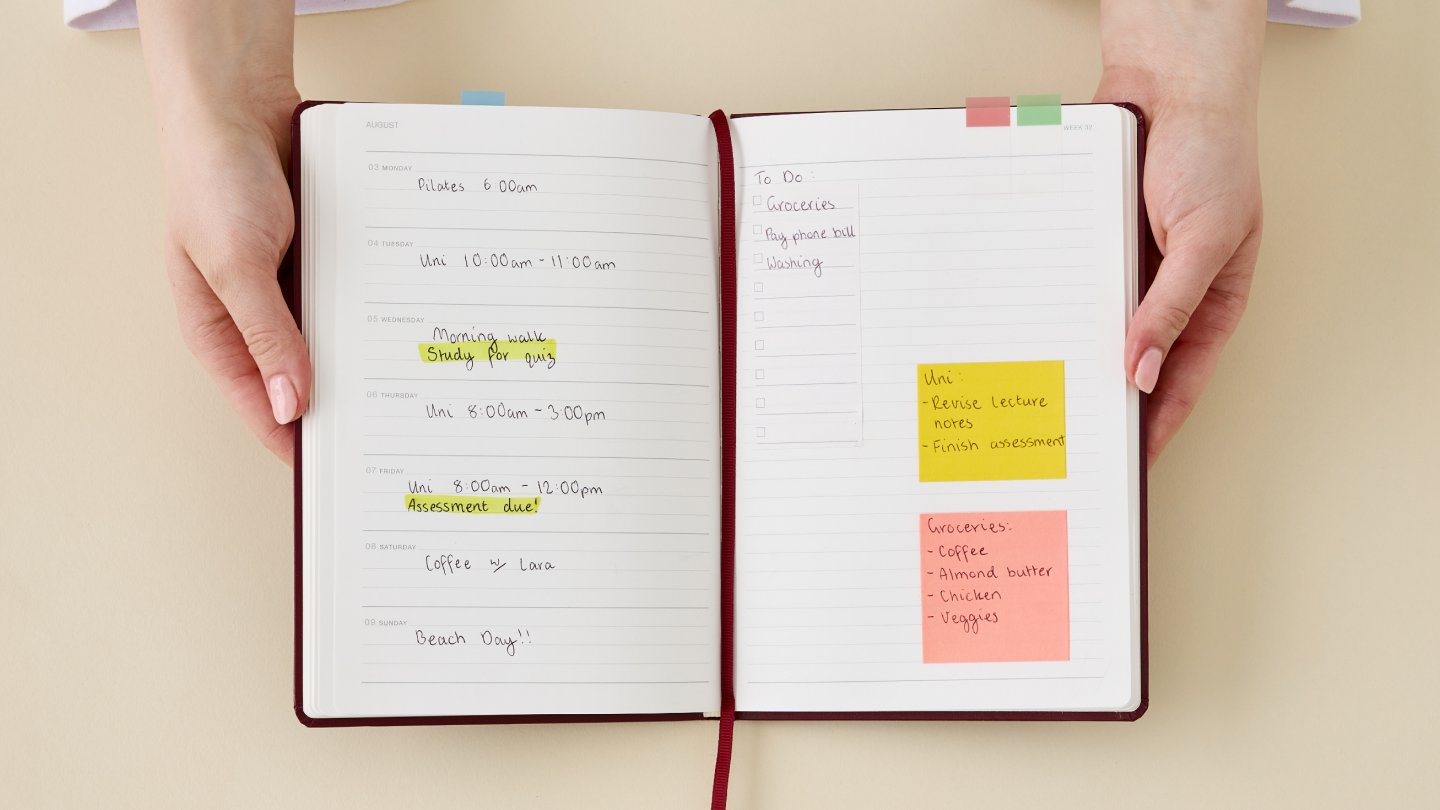 AUGUST
03 MONDAY
Pilates 6:00am
04 TUESDAY
Uni 10:00am - 11:00am
05 WEDNESDAY
Morning walk
Study for quiz
06 THURSDAY
Uni 8:00am - 3:00pm
07 FRIDAY
Uni 8:00am - 12:00pm
Assessment due!
08 SATURDAY
Coffee w/ Lara
09 SUNDAY
Beach Day!!
WEEK 32
To Do:
Groceries
Pay phone bill
Washing
Uni:
- Revise lecture
notes
- Finish assessment
Groceries:
- Coffee
- Almond butter
- Chicken
- Veggies